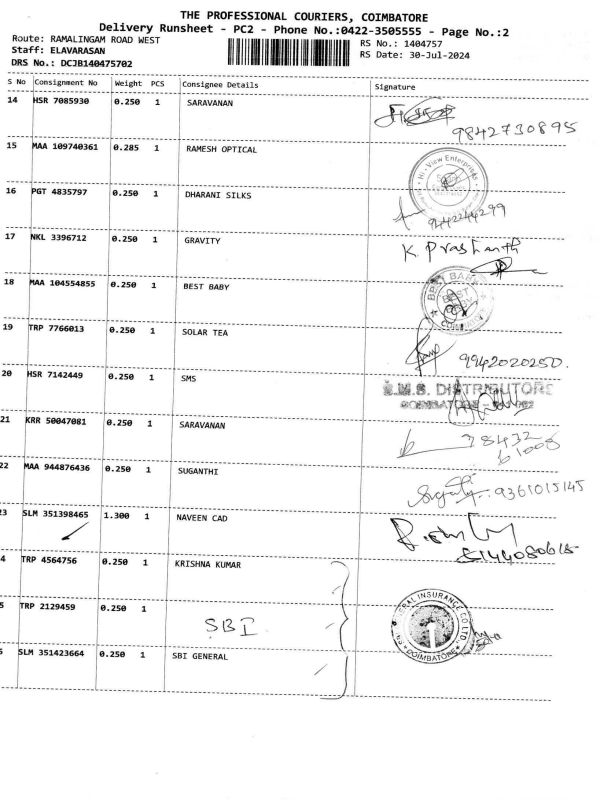 THE PROFESSIONAL COURIERS, COIMBATORE
Delivery Runsheet - PC2 - Phone No.:0422-3505555 - Page No.:2
Route: RAMALINGAM ROAD WEST RS No.: 1404757
Staff: ELAVARASAN RS Date: 30-Jul-2024
DRS No.: DCJB140475702
S No Consignment No Weight PCS Consignee Details Signature
14 HSR 7085930 0.250 1 SARAVANAN
9842730895
15 MAA 109740361 0.285 1 RAMESH OPTICAL
Hi-View Enterprises
16 PGT 4835797 0.250 1 DHARANI SILKS
9442244299
17 NKL 3396712 0.250 1 GRAVITY K. Prashanth
18 MAA 104554855 0.250 1 BEST BABY
BEST
19 TRP 7766013 0.250 1 SOLAR TEA
9942020250.
20 HSR 7142449 0.250 1 SMS
S.M.S. DISTRIBUTORS
COIMBATORE
21 KRR 50047081 0.250 1 SARAVANAN
78432
61008
22 MAA 944876436 0.250 1 SUGANTHI
9361015145
23 SLM 351398465 1.300 1 NAVEEN CAD
4 TRP 4564756 0.250 1 KRISHNA KUMAR
5 TRP 2129459 0.250 1
SBI
GENERAL INSURANCE CO LTD
COIMBATORE
6 SLM 351423664 0.250 1 SBI GENERAL